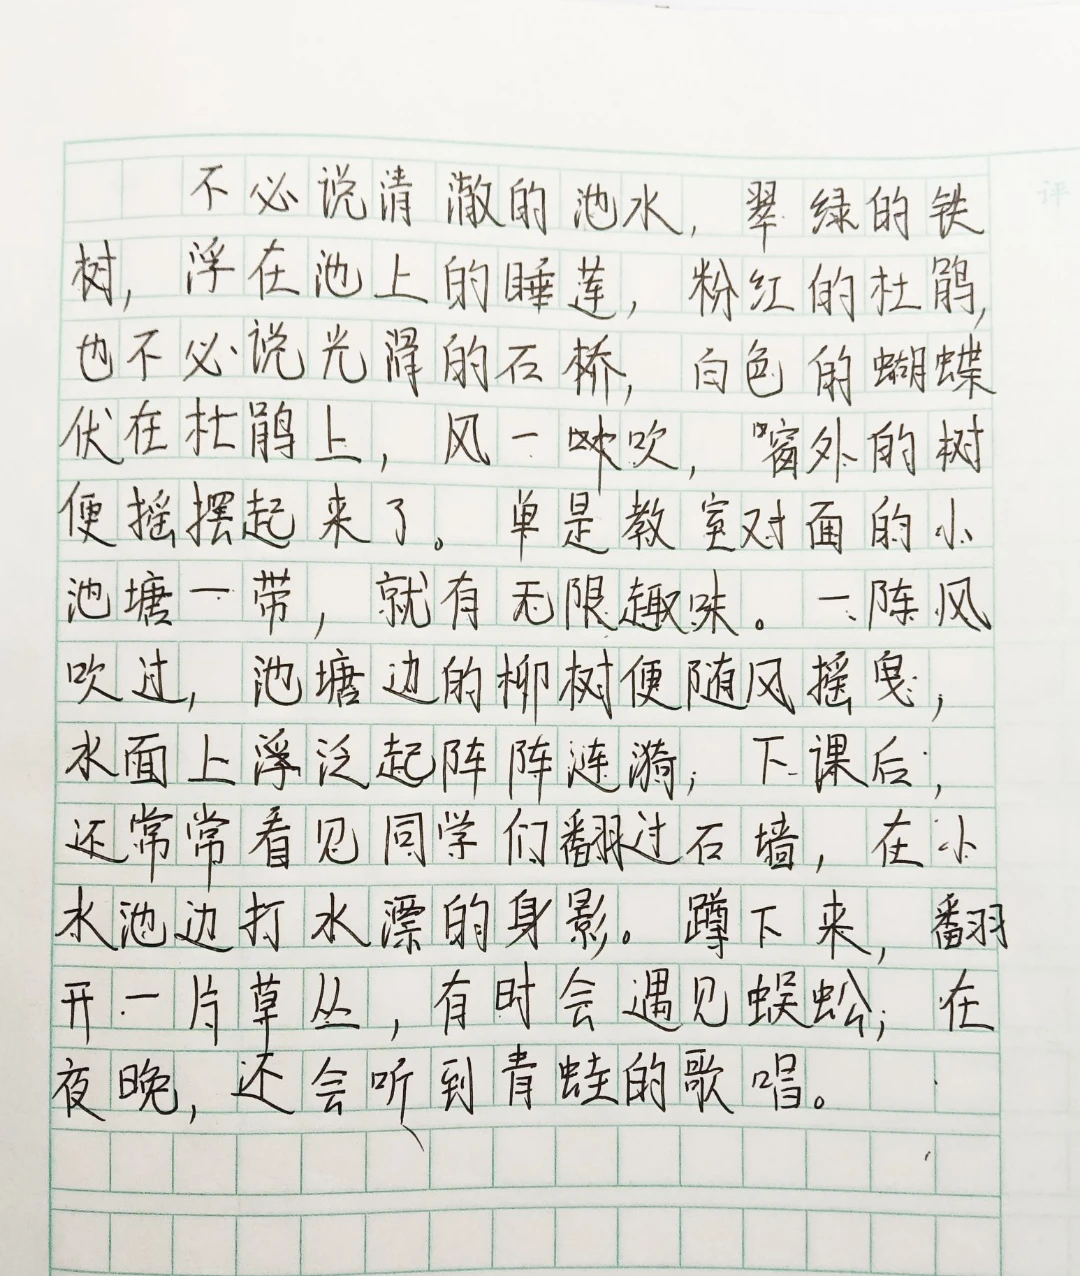 不必说清澈的池水,翠绿的铁
树,浮在池上的睡莲,粉红的杜鹃,
也不必说光滑的石桥,白色的蝴蝶
伏在杜鹃上,风一吹,窗外的树
便摇摆起来了。单是教室对面的小
池塘一带,就有无限趣味。一阵风
吹过,池塘边的柳树便随风摇曳,
水面上浮泛起阵阵涟漪;下课后,
还常常看见同学们翻过石墙,在小
水池边打水漂的身影。蹲下来,翻
开一片草丛,有时会遇见蜈蚣;在
夜晚,还会听到青蛙的歌唱。
评